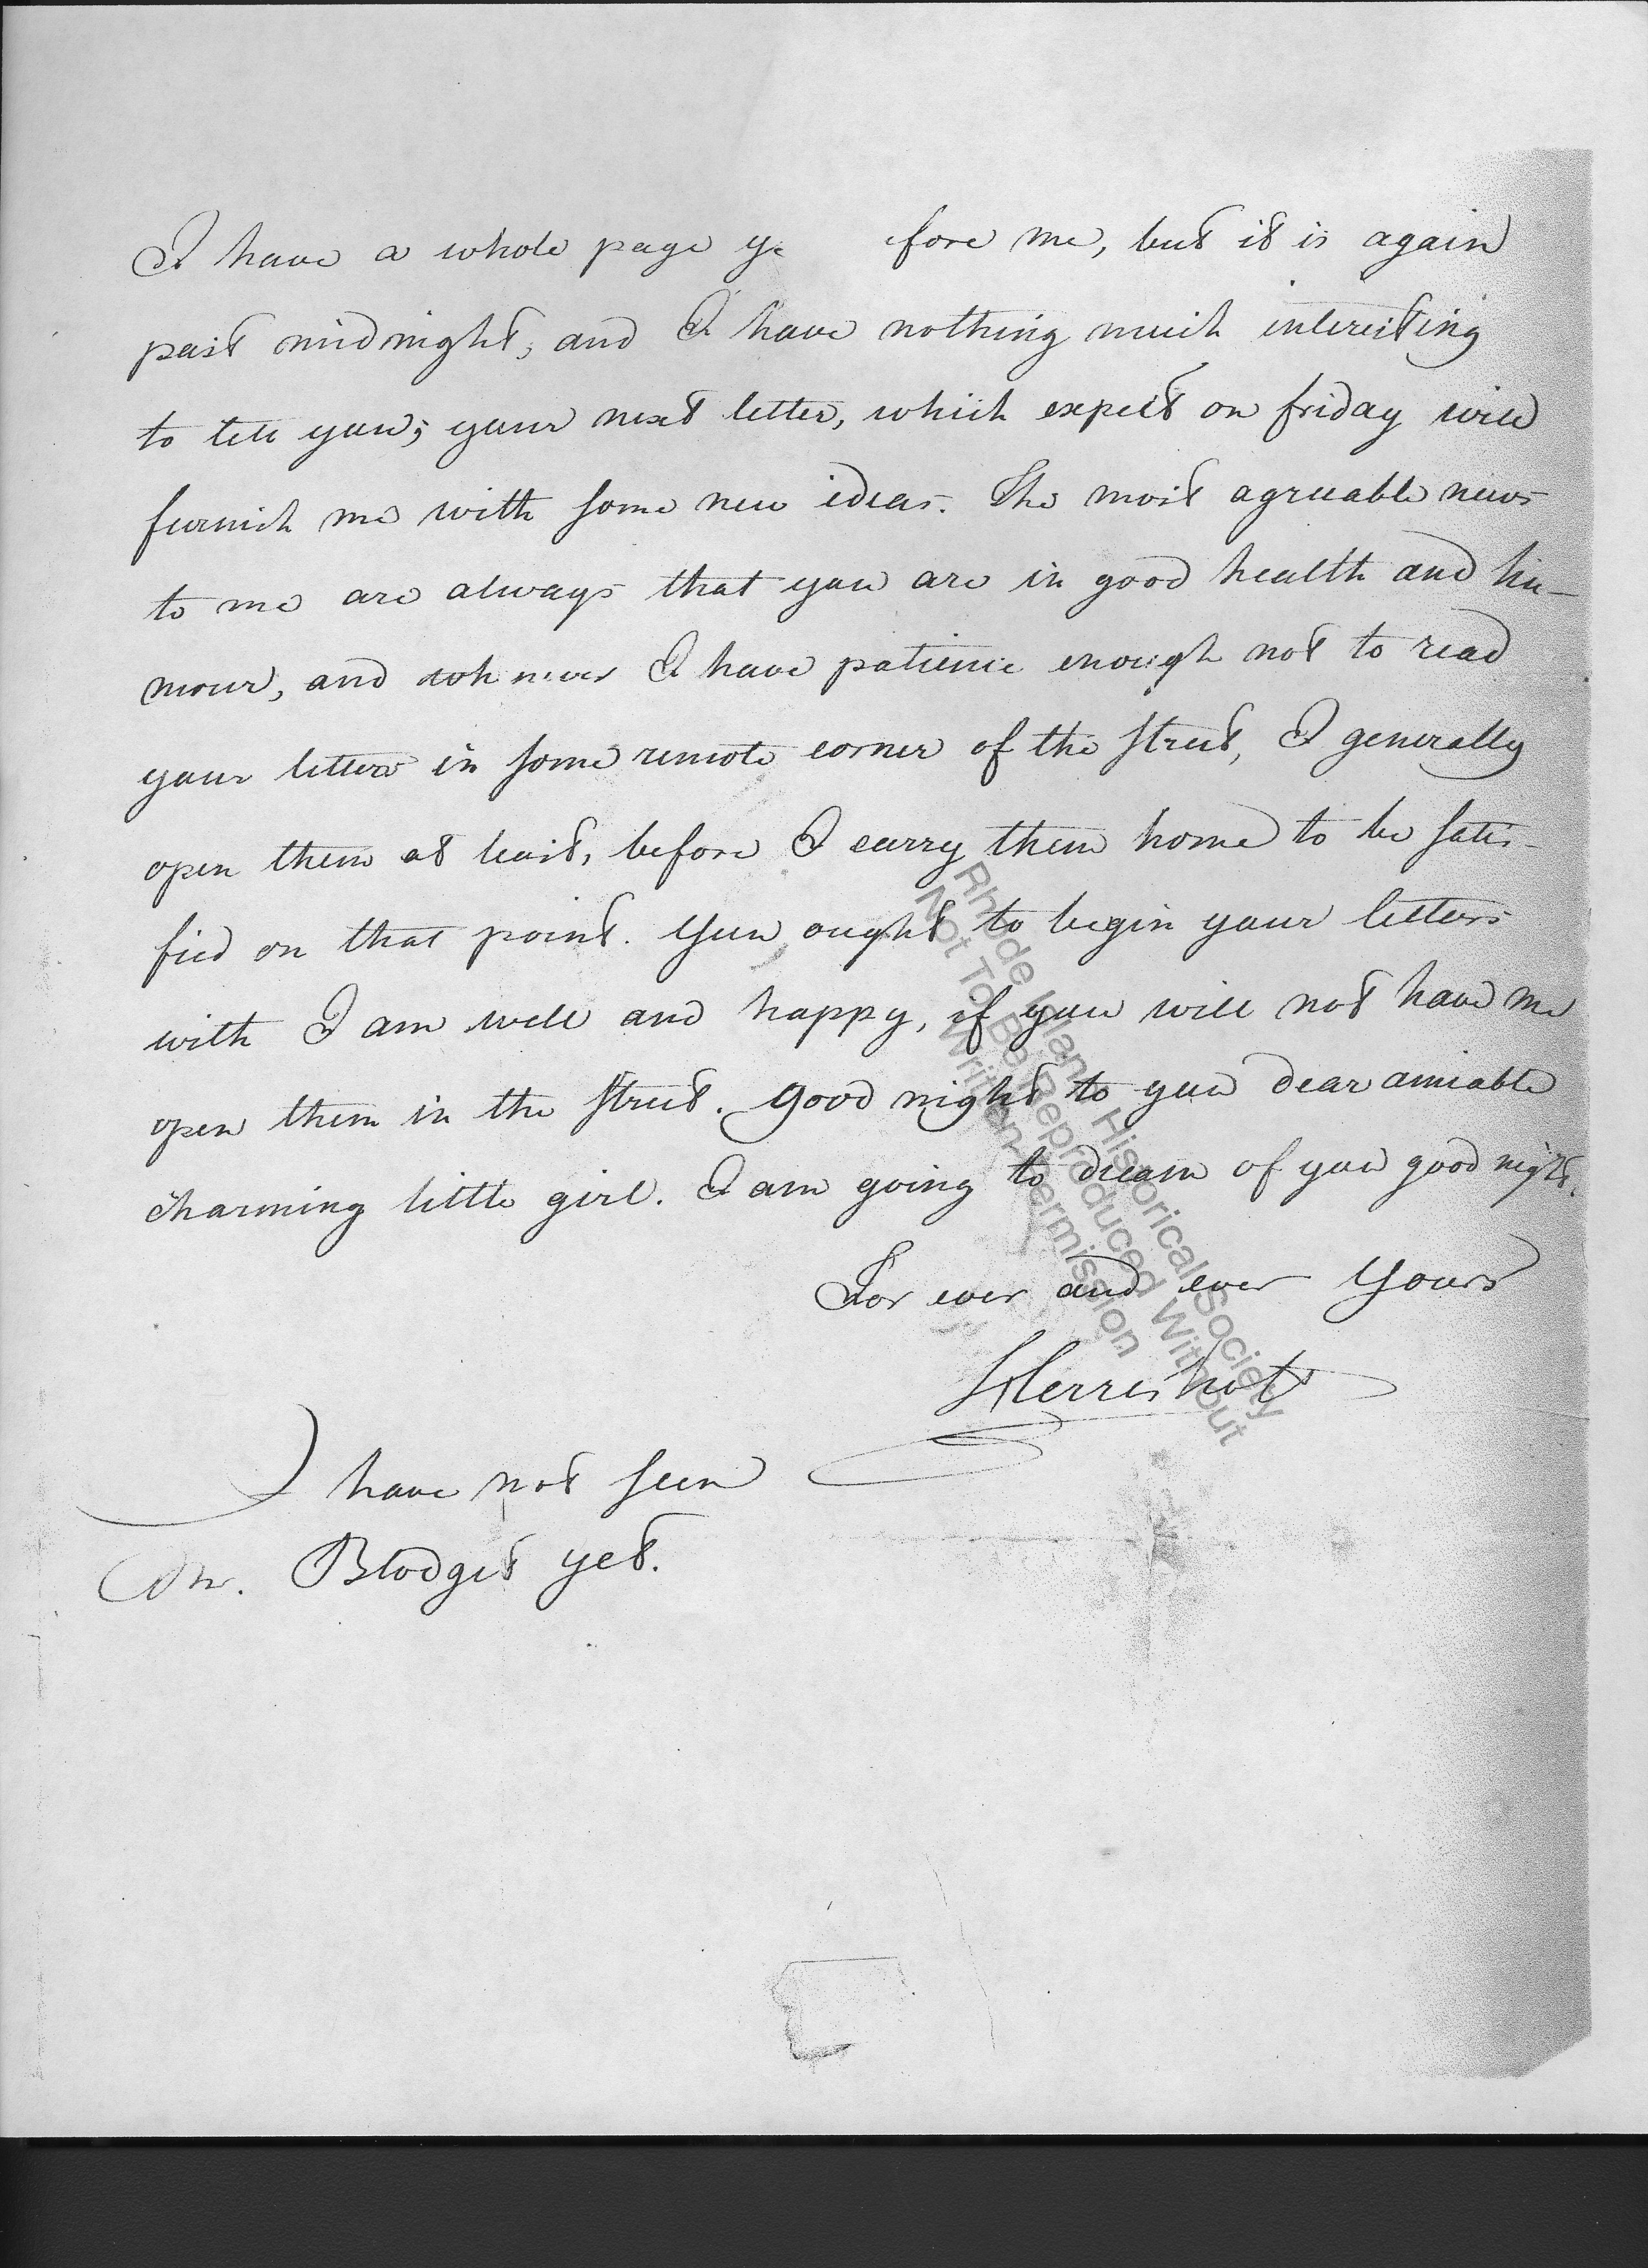 I have a whole page ye fore me, but it is again
past midnight, and I have nothing much interesting
to tell you; your next letter, which expect on friday will
furnish me with some new ideas. The most agreeable news
to me are always that you are in good health and hu-
mour, and whenever I have patience enough not to read
your letters in some remote corner of the street, I generally
open them at least, before I carry them home to be satis-
fied on that point. You ought to begin your letters
with I am well and happy, if you will not have me
open them in the street. good night to you dear amiable
charming little girl. I am going to dream of you good night.
For ever and ever yours
Herreshoff
I have not seen
Mr. Blodget yet.
Rhode Island Historical Society
Not To Be Reproduced Without
Written Permission